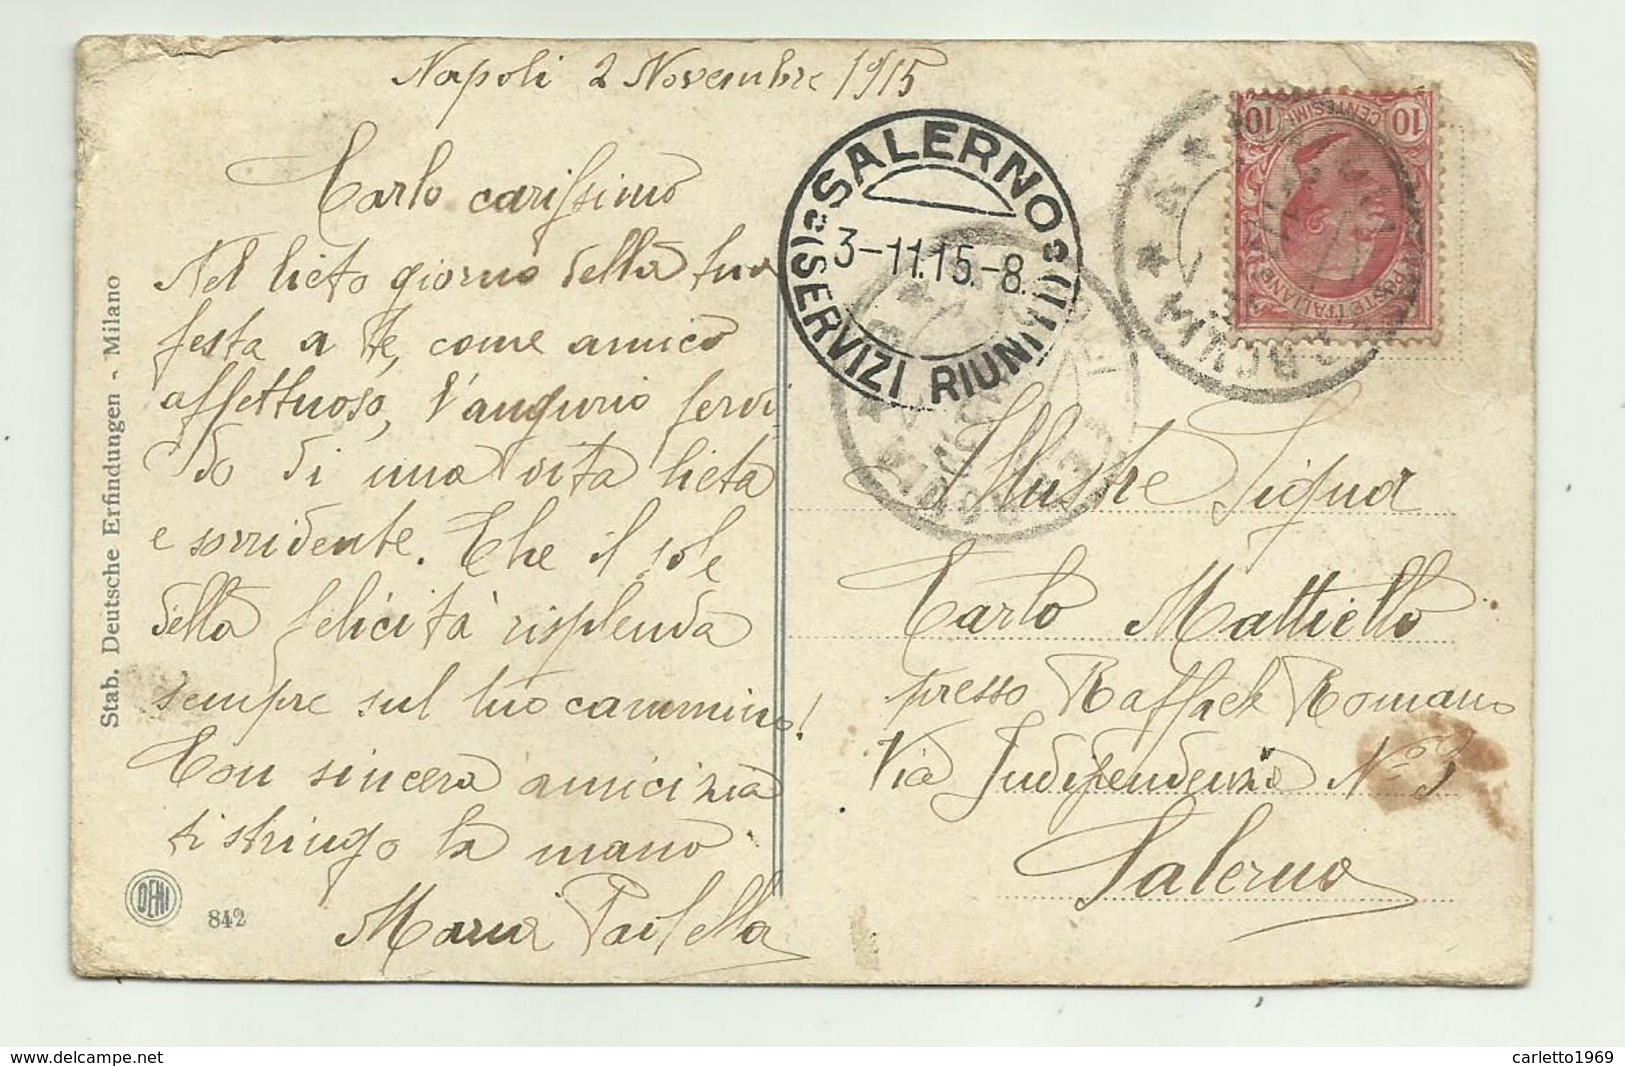 Napoli 2 Novembre 1915
Carlo carissimo
Nel lieto giorno della tua
festa a te, come amico
affettuoso, l'augurio fervi-
do di una vita lieta
e sorridente. Che il sole
della felicità risplenda
sempre sul tuo cammino!
Con sincera amicizia
ti stringo la mano
Maria
Stab. Deutsche Erfindungen - Milano
DENI
842
SALERNO
3-11.15.-8.
(SERVIZI RIUNITI)
10 CENTESIMI 10
POSTE ITALIANE
Illustre Signor
Carlo Mattiello
presso Raffaele Romano
Via Indipendenza N°
Salerno
delcampe.net
carletto1969